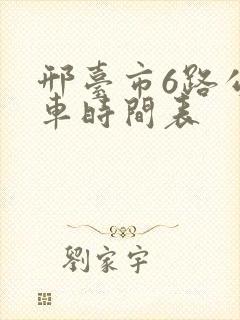 邢臺市6路公
車時間表
劉家宇